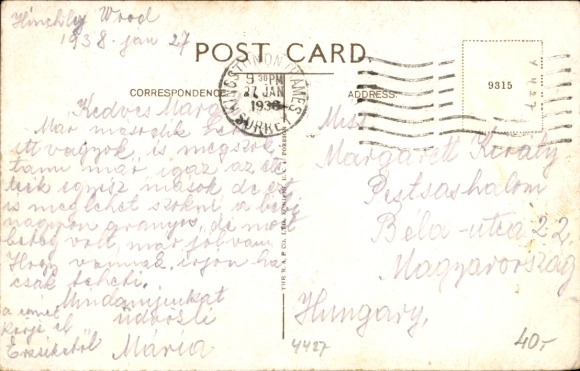 Hinchly Wood
1938. jan 27
POST CARD
CORRESPONDENCE
ADDRESS
KINGSTON ON THAMES
9 30 PM
27 JAN
1938
SURREY
9315
Kedves
Már második
itt vagyok, is megszok-
tam már, igaz az ét-
teik egész mások de ezt
is meglehet szokni, a
nagyon aranyos, de most
beteg volt, már jól van.
Hogy vannak, írjon ha
csak teheti.
Mindannyiukat
üdvözli
Mária
a címet
kérje el
Erzsikétől
Miss
Margarett Király
Pestsashalom
Béla-utca 22.
Magyarország
Hungary.
4427
40,-